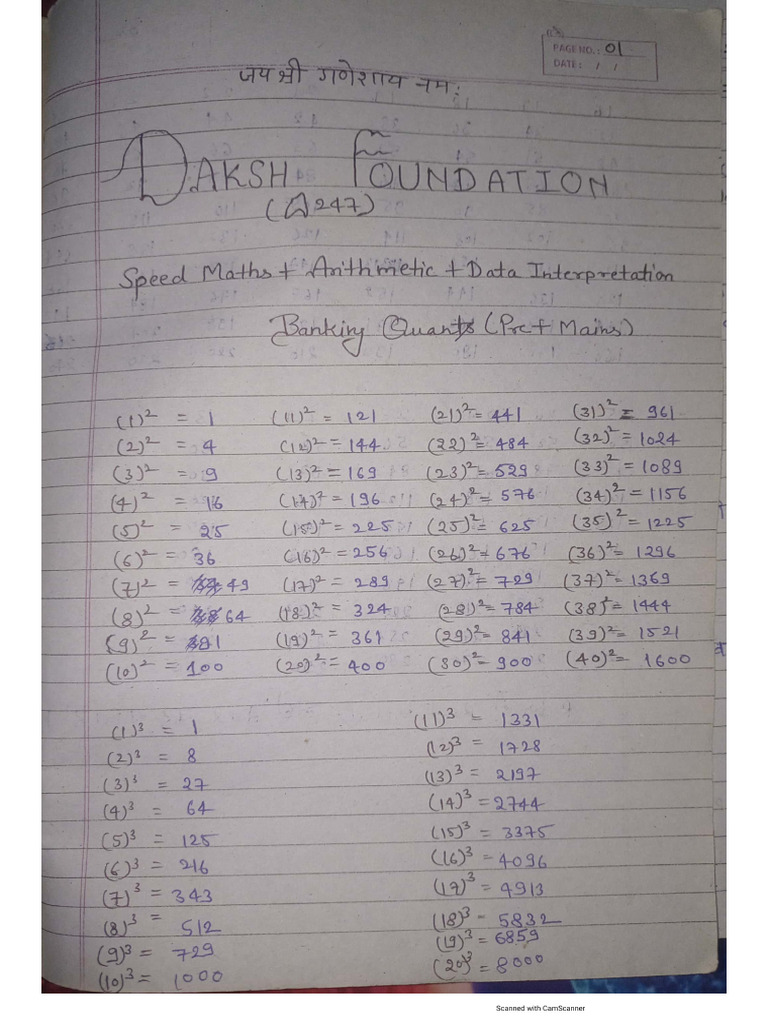 PAGE NO.: 01
DATE: / /
जय श्री गणेशाय नमः
DAKSH FOUNDATION
(A247)
Speed Maths + Arithmetic + Data Interpretation
Banking Quants (Pre + Mains)
(1)² = 1 (11)² = 121 (21)² = 441 (31)² = 961
(2)² = 4 (12)² = 144 (22)² = 484 (32)² = 1024
(3)² = 9 (13)² = 169 (23)² = 529 (33)² = 1089
(4)² = 16 (14)² = 196 (24)² = 576 (34)² = 1156
(5)² = 25 (15)² = 225 (25)² = 625 (35)² = 1225
(6)² = 36 (16)² = 256 (26)² = 676 (36)² = 1296
(7)² = 49 (17)² = 289 (27)² = 729 (37)² = 1369
(8)² = 64 (18)² = 324 (28)² = 784 (38)² = 1444
(9)² = 81 (19)² = 361 (29)² = 841 (39)² = 1521
(10)² = 100 (20)² = 400 (30)² = 900 (40)² = 1600
(1)³ = 1 (11)³ = 1331
(2)³ = 8 (12)³ = 1728
(3)³ = 27 (13)³ = 2197
(4)³ = 64 (14)³ = 2744
(5)³ = 125 (15)³ = 3375
(6)³ = 216 (16)³ = 4096
(7)³ = 343 (17)³ = 4913
(8)³ = 512 (18)³ = 5832
(9)³ = 729 (19)³ = 6859
(10)³ = 1000 (20)³ = 8000
Scanned with CamScanner